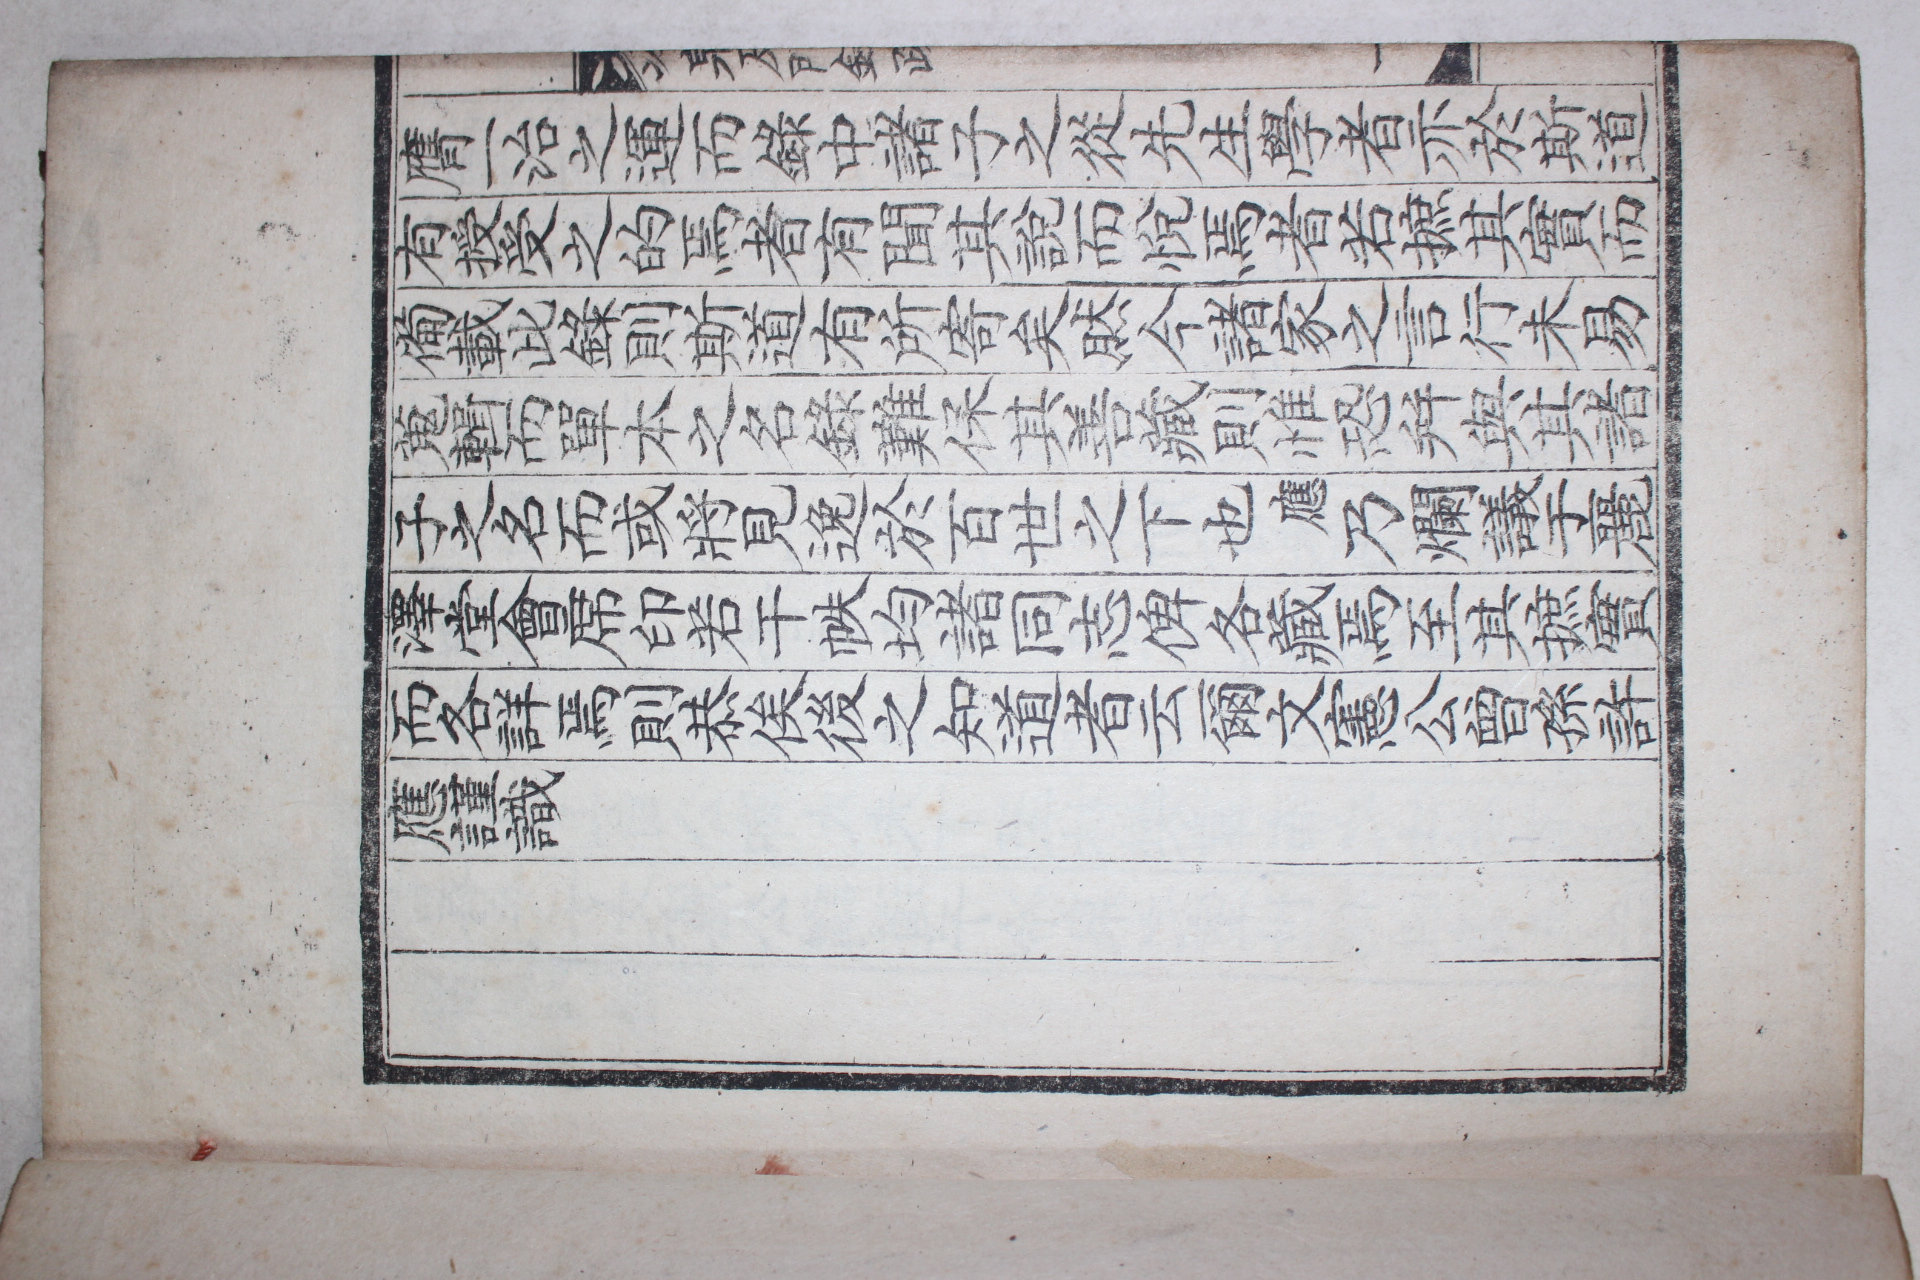 膺一治之運而錄中諸子之從先生學者亦於斯道
有授受之的焉者有聞其說而悅焉者若摭其實而
備載比錄則斯道有所寄矣然今諸家之言行未易
蒐輯而單本之名錄難保其善藏則惟恐幷與其諸
子之名而或將見逸於百世之下也應乃爛議于麗
澤堂會席印若干帙均諸同志俾各藏焉至其摭實
而各詳焉則恭俟後之知道者云爾文憲公曾孫許
應謹識